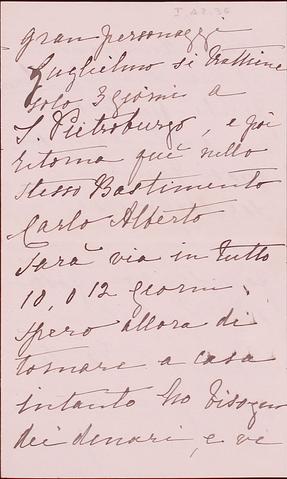 I A2.36
gran personaggi
Guglielmo si trattiene
solo 3 giorni a
S. Pietroburgo, e poi
ritorna quì nello
stesso Bastimento
Carlo Alberto
Sarà via in tutto
10, o 12 giorni.
spero allora di
tornare a casa
intanto ho bisogno
dei denari, e ve